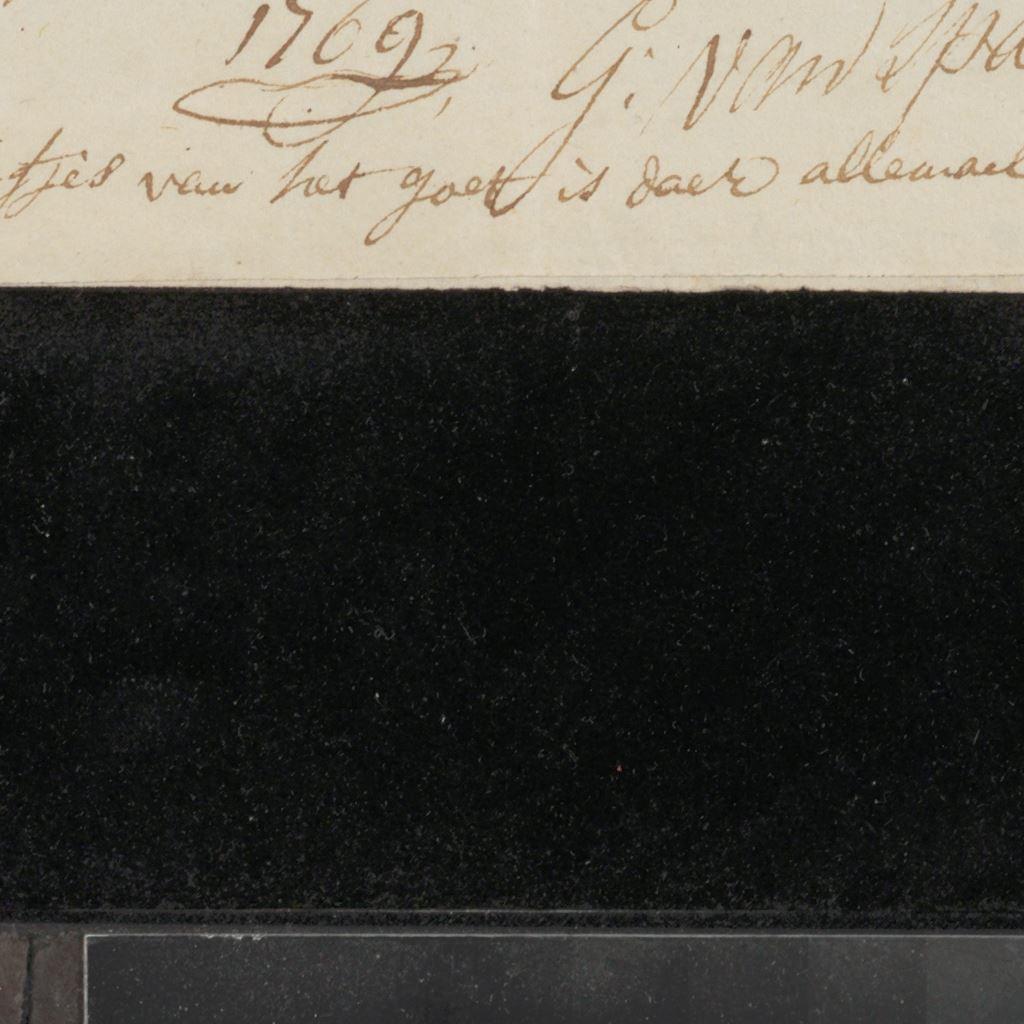 1769 G: Van Spa
tjes van het goet is daer allemael